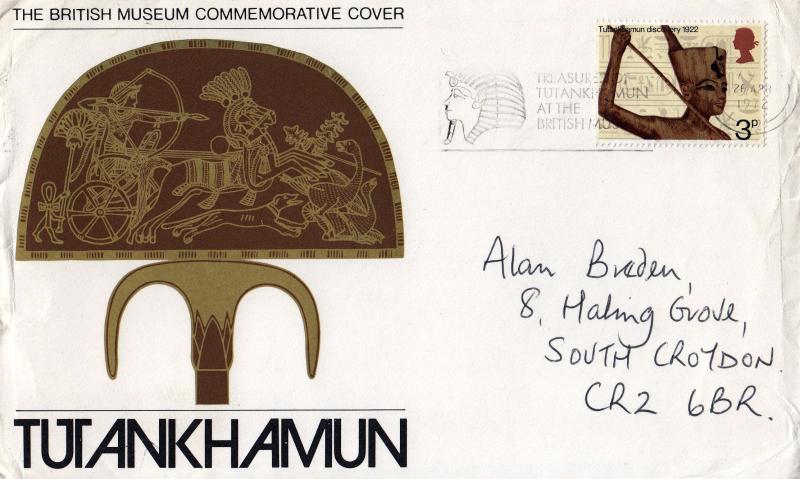 THE BRITISH MUSEUM COMMEMORATIVE COVER
Tutankhamun discovery 1922
TREASURES OF
TUTANKHAMUN
AT THE
BRITISH MUSEUM
APR
197
3p
Alan Breden,
8, Maling Grove,
SOUTH CROYDON.
CR2 6BR.
TUTANKHAMUN